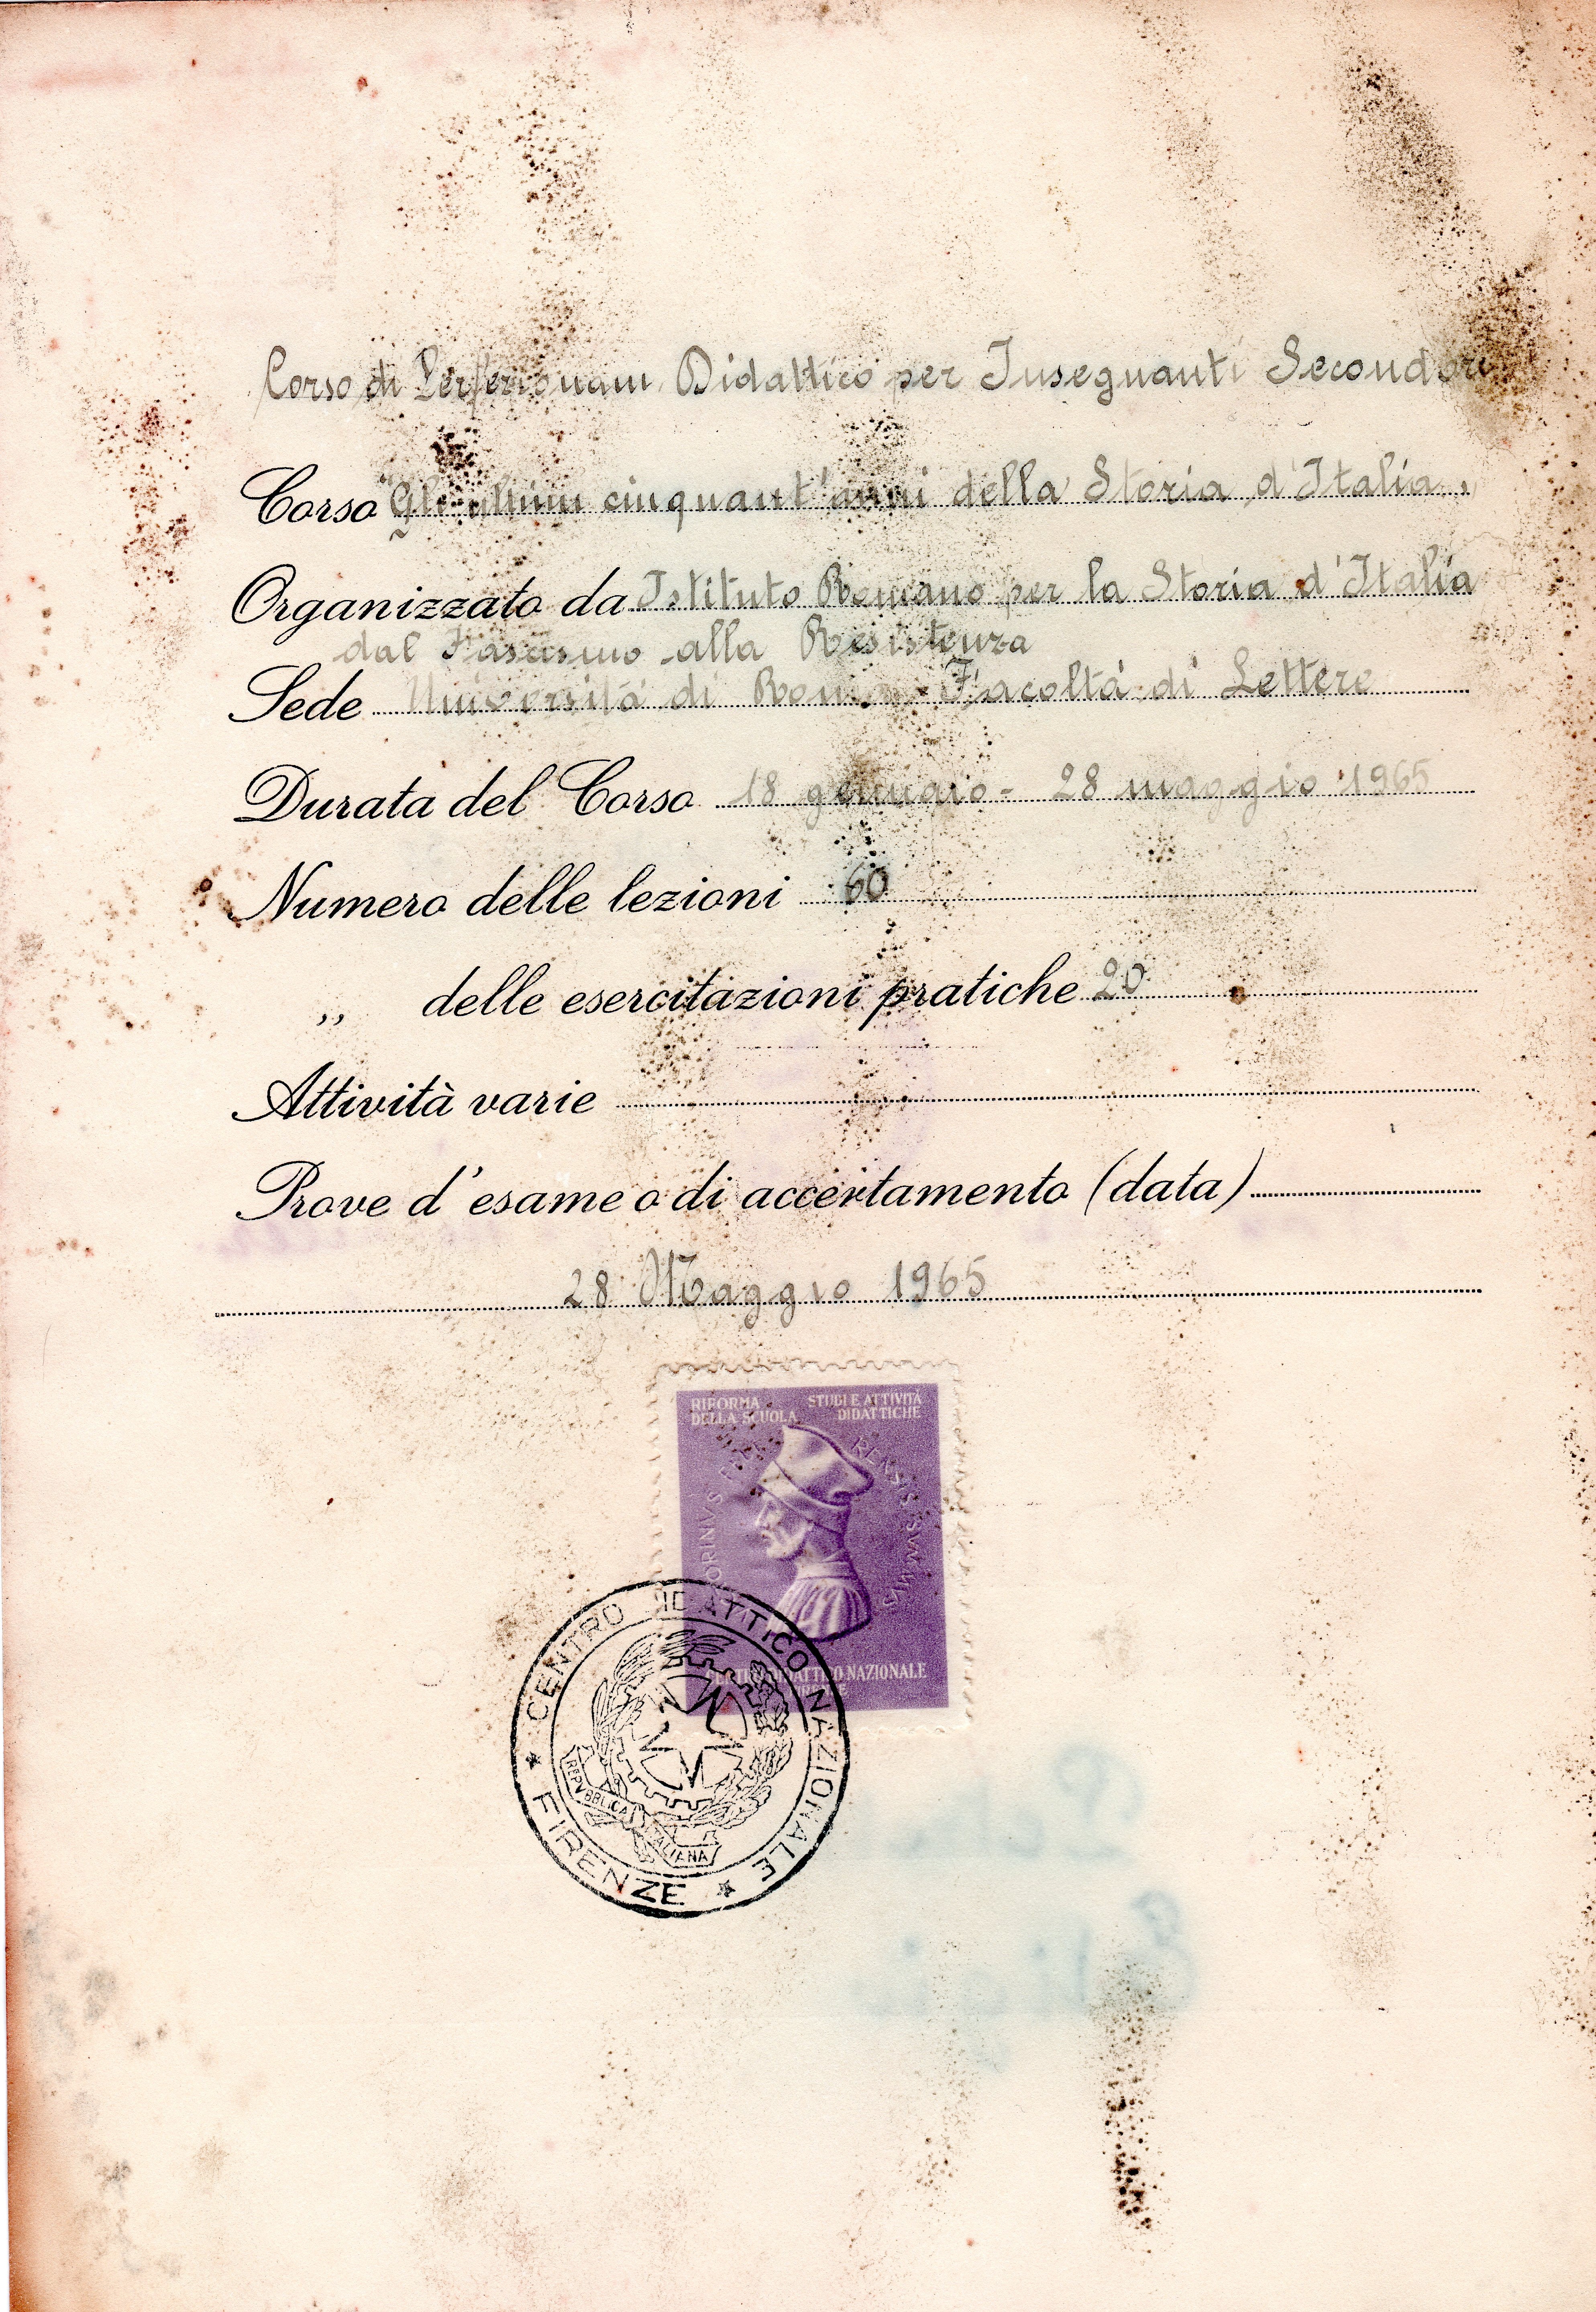 Corso di Perfezionam. Didattico per Insegnanti Secondari
Corso "Gli ultimi cinquant'anni della Storia d'Italia"
Organizzato da Istituto Romano per la Storia d'Italia
dal Fascismo alla Resistenza
Sede Università di Roma - Facoltà di Lettere
Durata del Corso 18 gennaio - 28 maggio 1965
Numero delle lezioni 60
,, delle esercitazioni pratiche 20
Attività varie
Prove d'esame o di accertamento (data)
28 Maggio 1965
RIFORMA DELLA SCUOLA
STUDI E ATTIVITÀ DIDATTICHE
SVMMVS
CENTRO DIDATTICO NAZIONALE
CENTRO DIDATTICO NAZIONALE
FIRENZE
REPVBBLICA ITALIANA